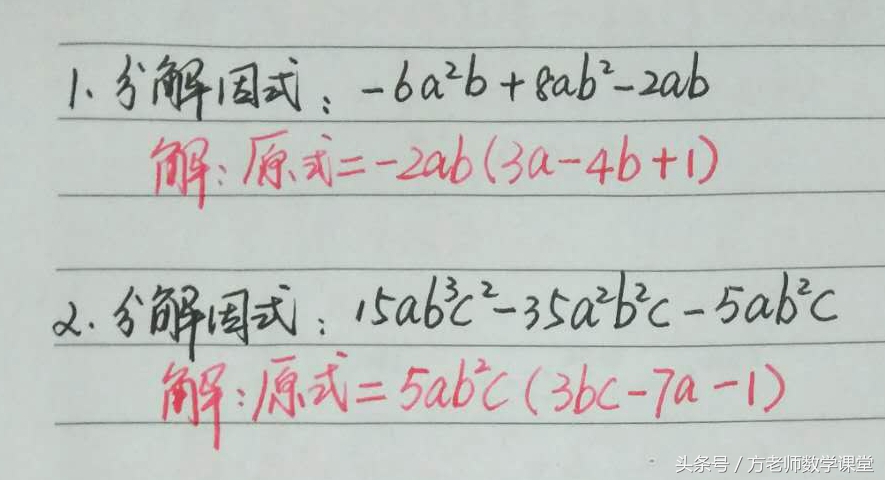 1. 分解因式：-6a²b+8ab²-2ab
解：原式=-2ab(3a-4b+1)
2. 分解因式：15ab³c²-35a²b²c-5ab²c
解：原式=5ab²c(3bc-7a-1)
头条号 / 方老师数学课堂